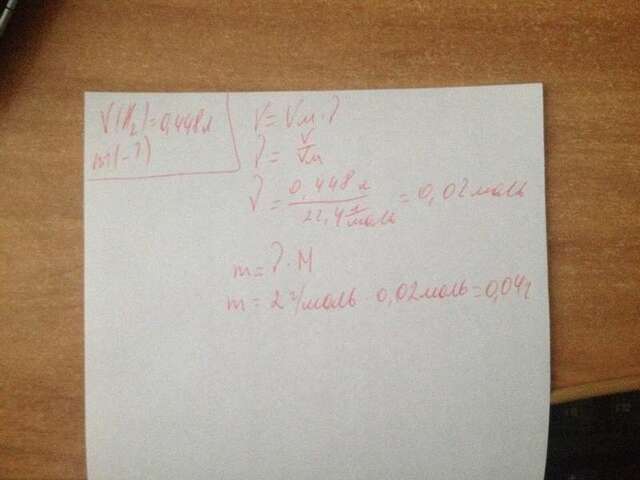 V(H₂)=0,448л
m(-?)
V=Vm·ν
ν=V/Vm
ν=0,448л/22,4л/моль=0,02моль
m=ν·M
m=2г/моль·0,02моль=0,04г